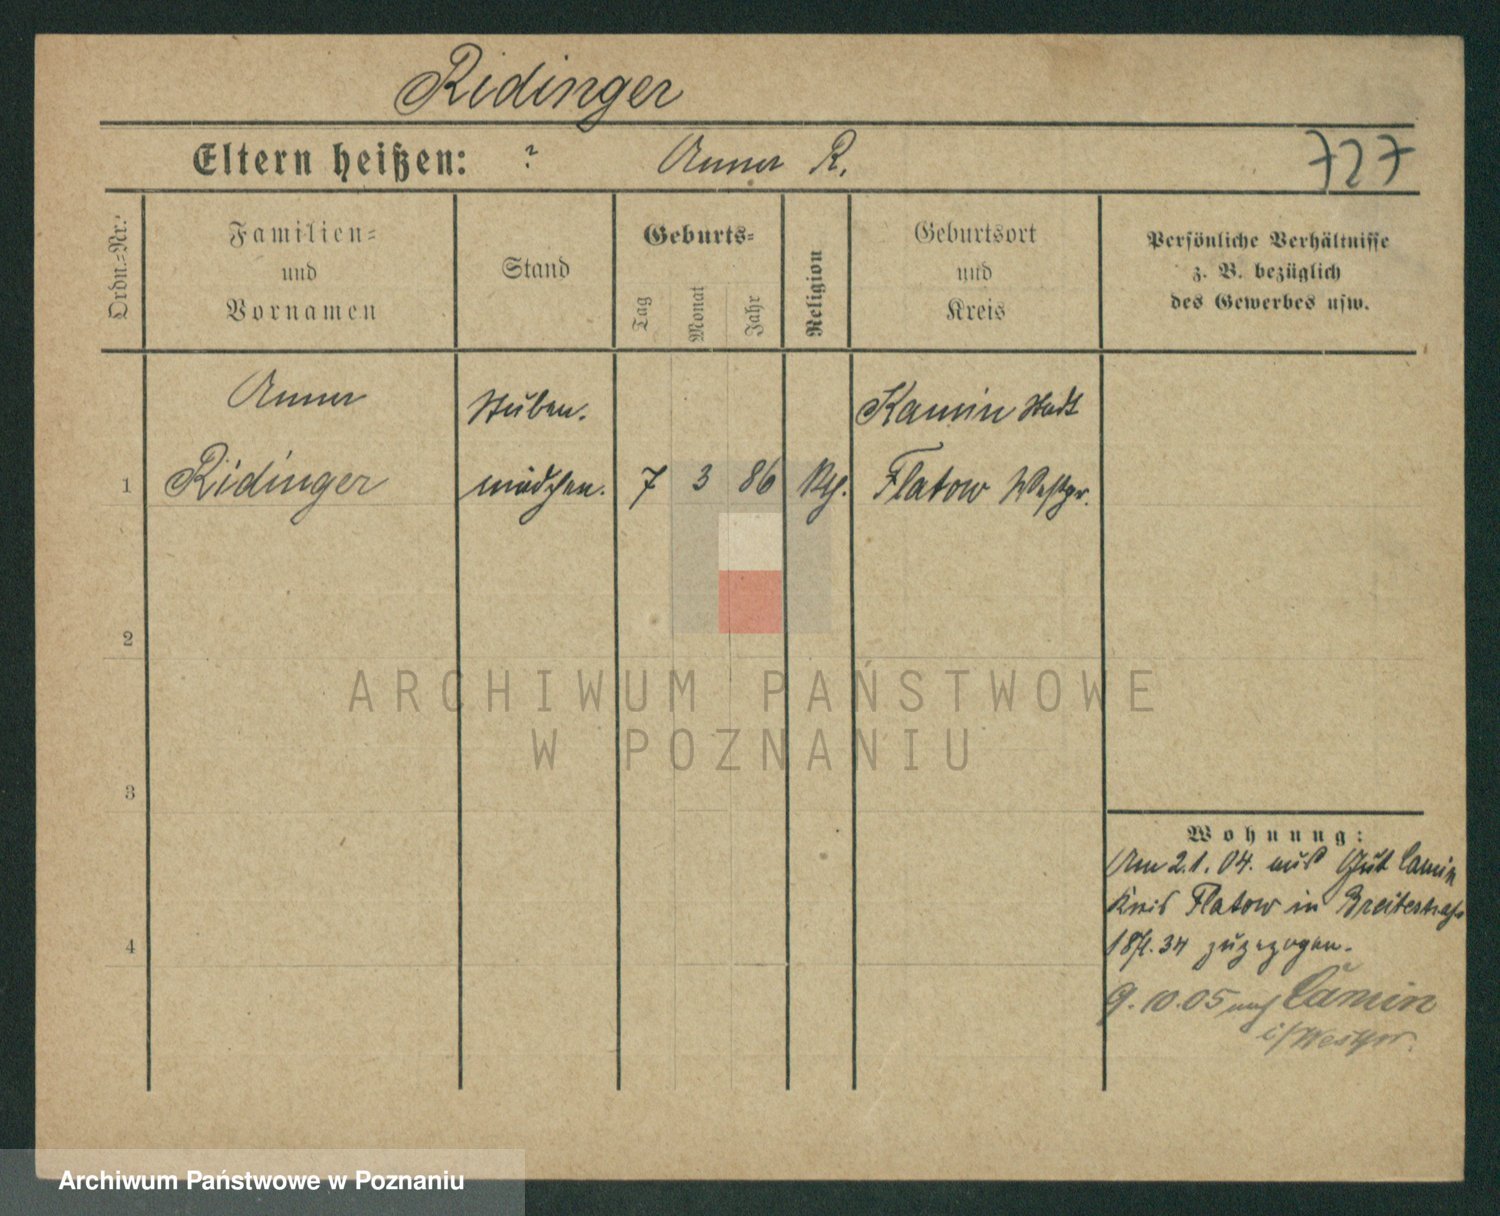 Ridinger
Eltern heißen: ? Anna R. 727
Ordn.-Nr.
Familien-
und
Vornamen
Stand
Geburts-
Tag
Monat
Jahr
Religion
Geburtsort
und
Kreis
Persönliche Verhältnisse
z. B. bezüglich
des Gewerbes usw.
Anna Stuben- Kamin Stadt
1 Ridinger mädchen. 7 3 86 Flatow Westpr.
2
3
4
Wohnung:
Am 2.1.04. aus Gut Camin
Kreis Flatow in Breitestraße
zugezogen.
9.10.05 nach Camin
i/Westpr.
ARCHIWUM PAŃSTWOWE
W POZNANIU
Archiwum Państwowe w Poznaniu